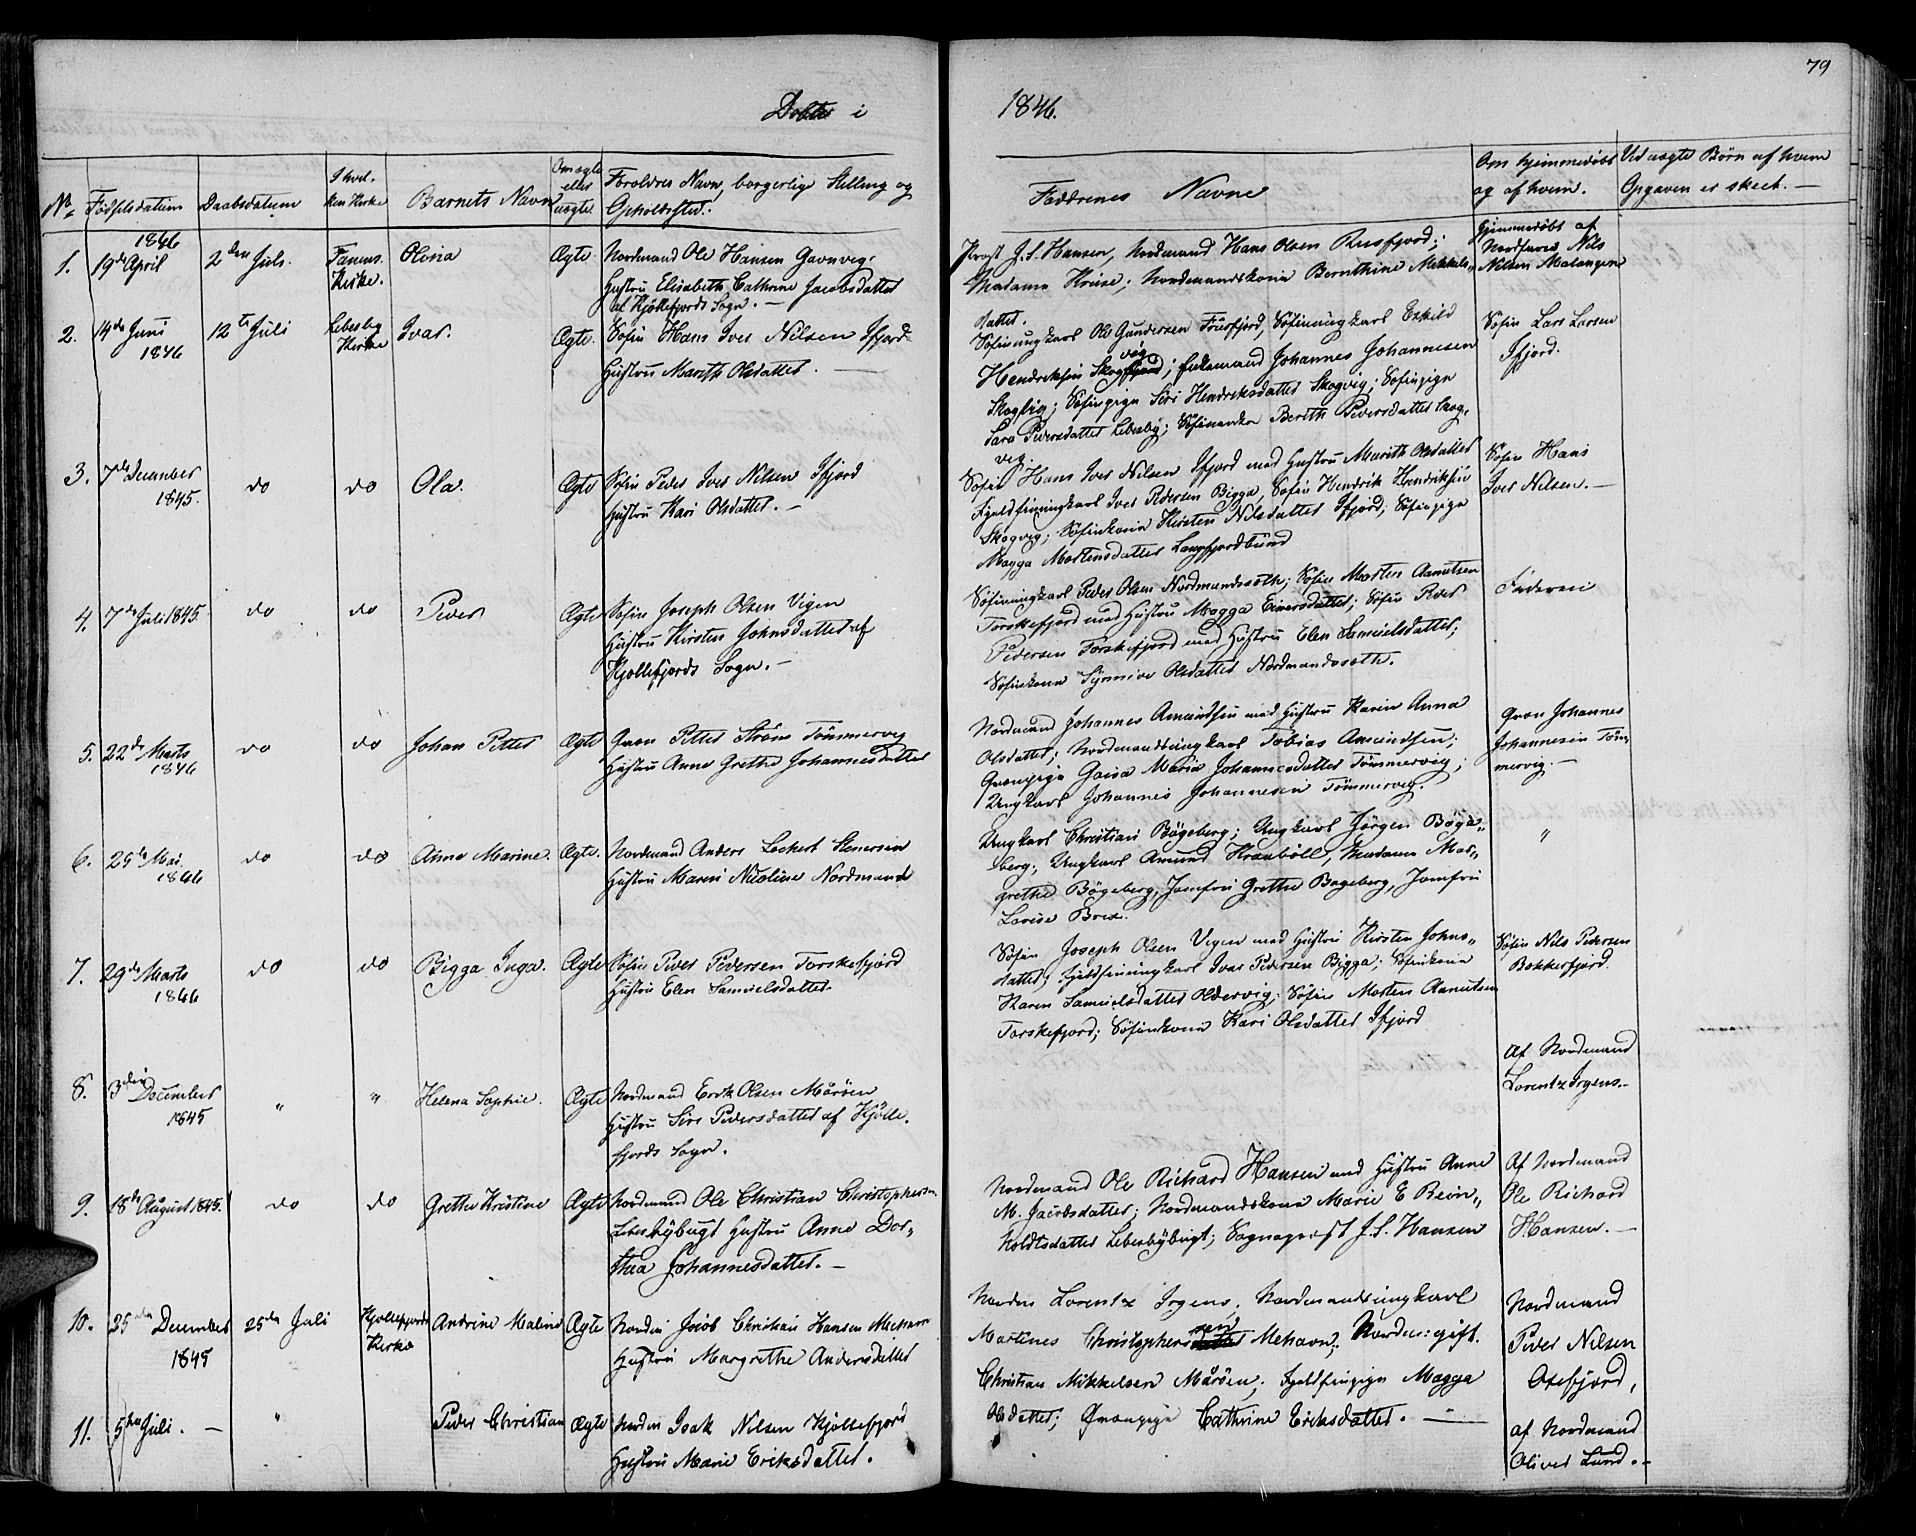 79
Døbte i 1846.
No Fødselsdatum Daabsdatum I hvilken Kirke Barnets Navn Om ægte eller uægte Forældres Navn, borgerlige Stilling og Opholdssted.
Faddernes Navne Om hjemmedøbt og af hvem. Ved uægte Børn af hvem Opgaven er skeet. —
1. 1846 19de April 2den Juli. Kirke. Olvia Ægte Nordmand Ole Hansen Gavnvig.
Hustru Elisabeth Cathrine Jacobsdatter
af Kjøllefjords Sogn. —
Provst J. S. Hansen, Nordmand Hans Olsen
Madame Kruse; Nordmandskone Bernthine Mikkels-
datter.
Hjemmedøbt af
Nils
Nilsen Malangene
2. 14de Juni 1846 12te Juli Lebesby Kirke Ivar. Ægte. Søfin Hans Iver Nilsen Ifjord
Hustru Marith Olsdatter. —
Søfinungkarl Ole Gundersen Søfinungkarl Eskild
Hendriksen Skogvig; Johannes Johannesen
Skogvig; Søfinpige Siri Hendriksdatter Skogvig; Søfinpige
Sara Pedersdatter Lebesby; Søfinenke Berith Pedersdatter Skog-
vig.
Søfin Lars Larsen
Ifjord.
3. 7de December 1845. do do Ola. Ægte Søfin Peder Iver Nilsen Ifjord
Hustru Kari Olsdatter. —
Søfin Hans Iver Nilsen Ifjord med Hustru Marith Olsdatter
Fjeldfinungkarl Iver Pedersen Bigga, Søfin Hendrik Hendriksen
Skogvig; Søfinkone Kirsten Nilsdatter Ifjord; Søfinpige
Magga Mortensdatter Langfjordbund
Søfin Hans
Iver Nilsen. —
4. 7de Juli 1845. do do Peder Ægte Søfin Joseph Olsen Vigen
Hustru Kirsten Johnsdatter af
Kjøllefjords Sogn. —
Søfinungkarl Peder Olsen Nordmandssæth; Søfin Morten Aanutsen
Torskefjord med Hustru Magga Einersdatter; Søfin Peder
Pedersen Torskefjord med Hustru Elen Samuelsdatter;
Søfinkone Synnive Olsdatter Nordmandssæth.
Faderen
5. 22de Marts 1846 do do Johan Petter Ægte Qvæn Petter Strøm Tømmervig
Hustru Anne Grethe Johannesdatter
Nordmand Johannes Amundsen med Hustru Karen Anna
Olsdatter; Nordmandsungkarl Tobias Amundsen;
Qvænpige Gaisa Maria Johannesdatter Tømmervig;
Ungkarl Johannes Johannesen Tømmervig.
Qvæn Johannes
Johannesen Tøm-
mervig. —
6. 25de Mai 1846 do do Anne Marine. Ægte. Nordmand Anders Lockert Stenersen
Hustru Maren Nicoline Nordmand
Ungkarl Christian Bøgeberg; Ungkarl Jørgen Bøge-
berg; Ungkarl Amund Kranbøll, Madame Mar-
grethe Bøgeberg, Jomfru Grethe Bøgeberg, Jomfru
Lovise Brix.
"
7. 29de Marts 1846 do do Bigga Inga. Ægte Søfin Peder Pedersen Torskefjord
Hustru Elen Samuelsdatter.
Søfin Joseph Olsen Vigen med Hustru Kirsten Johns-
datter; Fjeldfinungkarl Ivar Pedersen Bigga; Søfinkone
Karen Samuelsdatter Oldervig; Søfin Morten Aanutsen
Torskefjord; Søfinkone Kari Olsdatter Ifjord
Søfin Nils Pedersen
Bekkerfjord.
8. 3die December 1845 " " Helena Sophie. Ægte Nordmand Erik Olsen Mårøen
Hustru Siri Pedersdatter af Kjølle-
fjords Sogn.
Af Nordmand
Lorentz Irgens. —
9. 18de August 1845. do do Grethe Kristine Ægte Nordmand Ole Christian Christophersen
Lebesbybugt Hustru Anne Dor-
thea Johannesdatter. —
Nordmand Ole Richard Hansen med Hustru Anne
M. Jacobsdatter; Nordmandskone Marie E Rein-
holdtsdatter Lebesbybugt; Sognepræst J. S. Hansen
Af Nordmand
Ole Richard
Hansen. —
10. 25de December 1845 25de Juli Kjøllefjords Kirke Andrine Maline Ægte Nordm: Jacob Christian Hansen Mehavn
Hustru Margrethe Andersdatter
Nordm: Lorentz Irgens, Nordmandsungkarl
Martines Christophersen Mehavn; Nordm: gift.
Christian Mikkelsen Mårøen, Fjeldfinpige Magga
Olsdatter; Qvænpige Cathrine Eriksdatter. —
Nordmand
Peder Nilsen
Oxefjord,
11. 5te Juli. — " Peder Christian Ægte Nordm: Isak Nilsen Kjøllefjord
Hustru Marie Eriksdatter.
af Nordmand
Oliver Lund. —